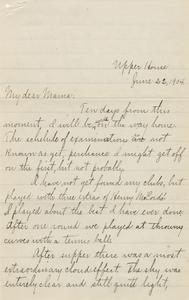 Upper House
June 22, 1904
My dear Mama:
Ten days from this
moment, I will be on the way home.
The schedule of examinations is not
known as yet, perchance I might get off
on the first, but not probably.
I have not yet found any clubs, but
played with three of Henry
I played about the best I have ever done
After one round we played at throwing
curves with a tennis ball
After supper there was a most
extraordinary cloud effect. The sky was
entirely clear and still quite light,